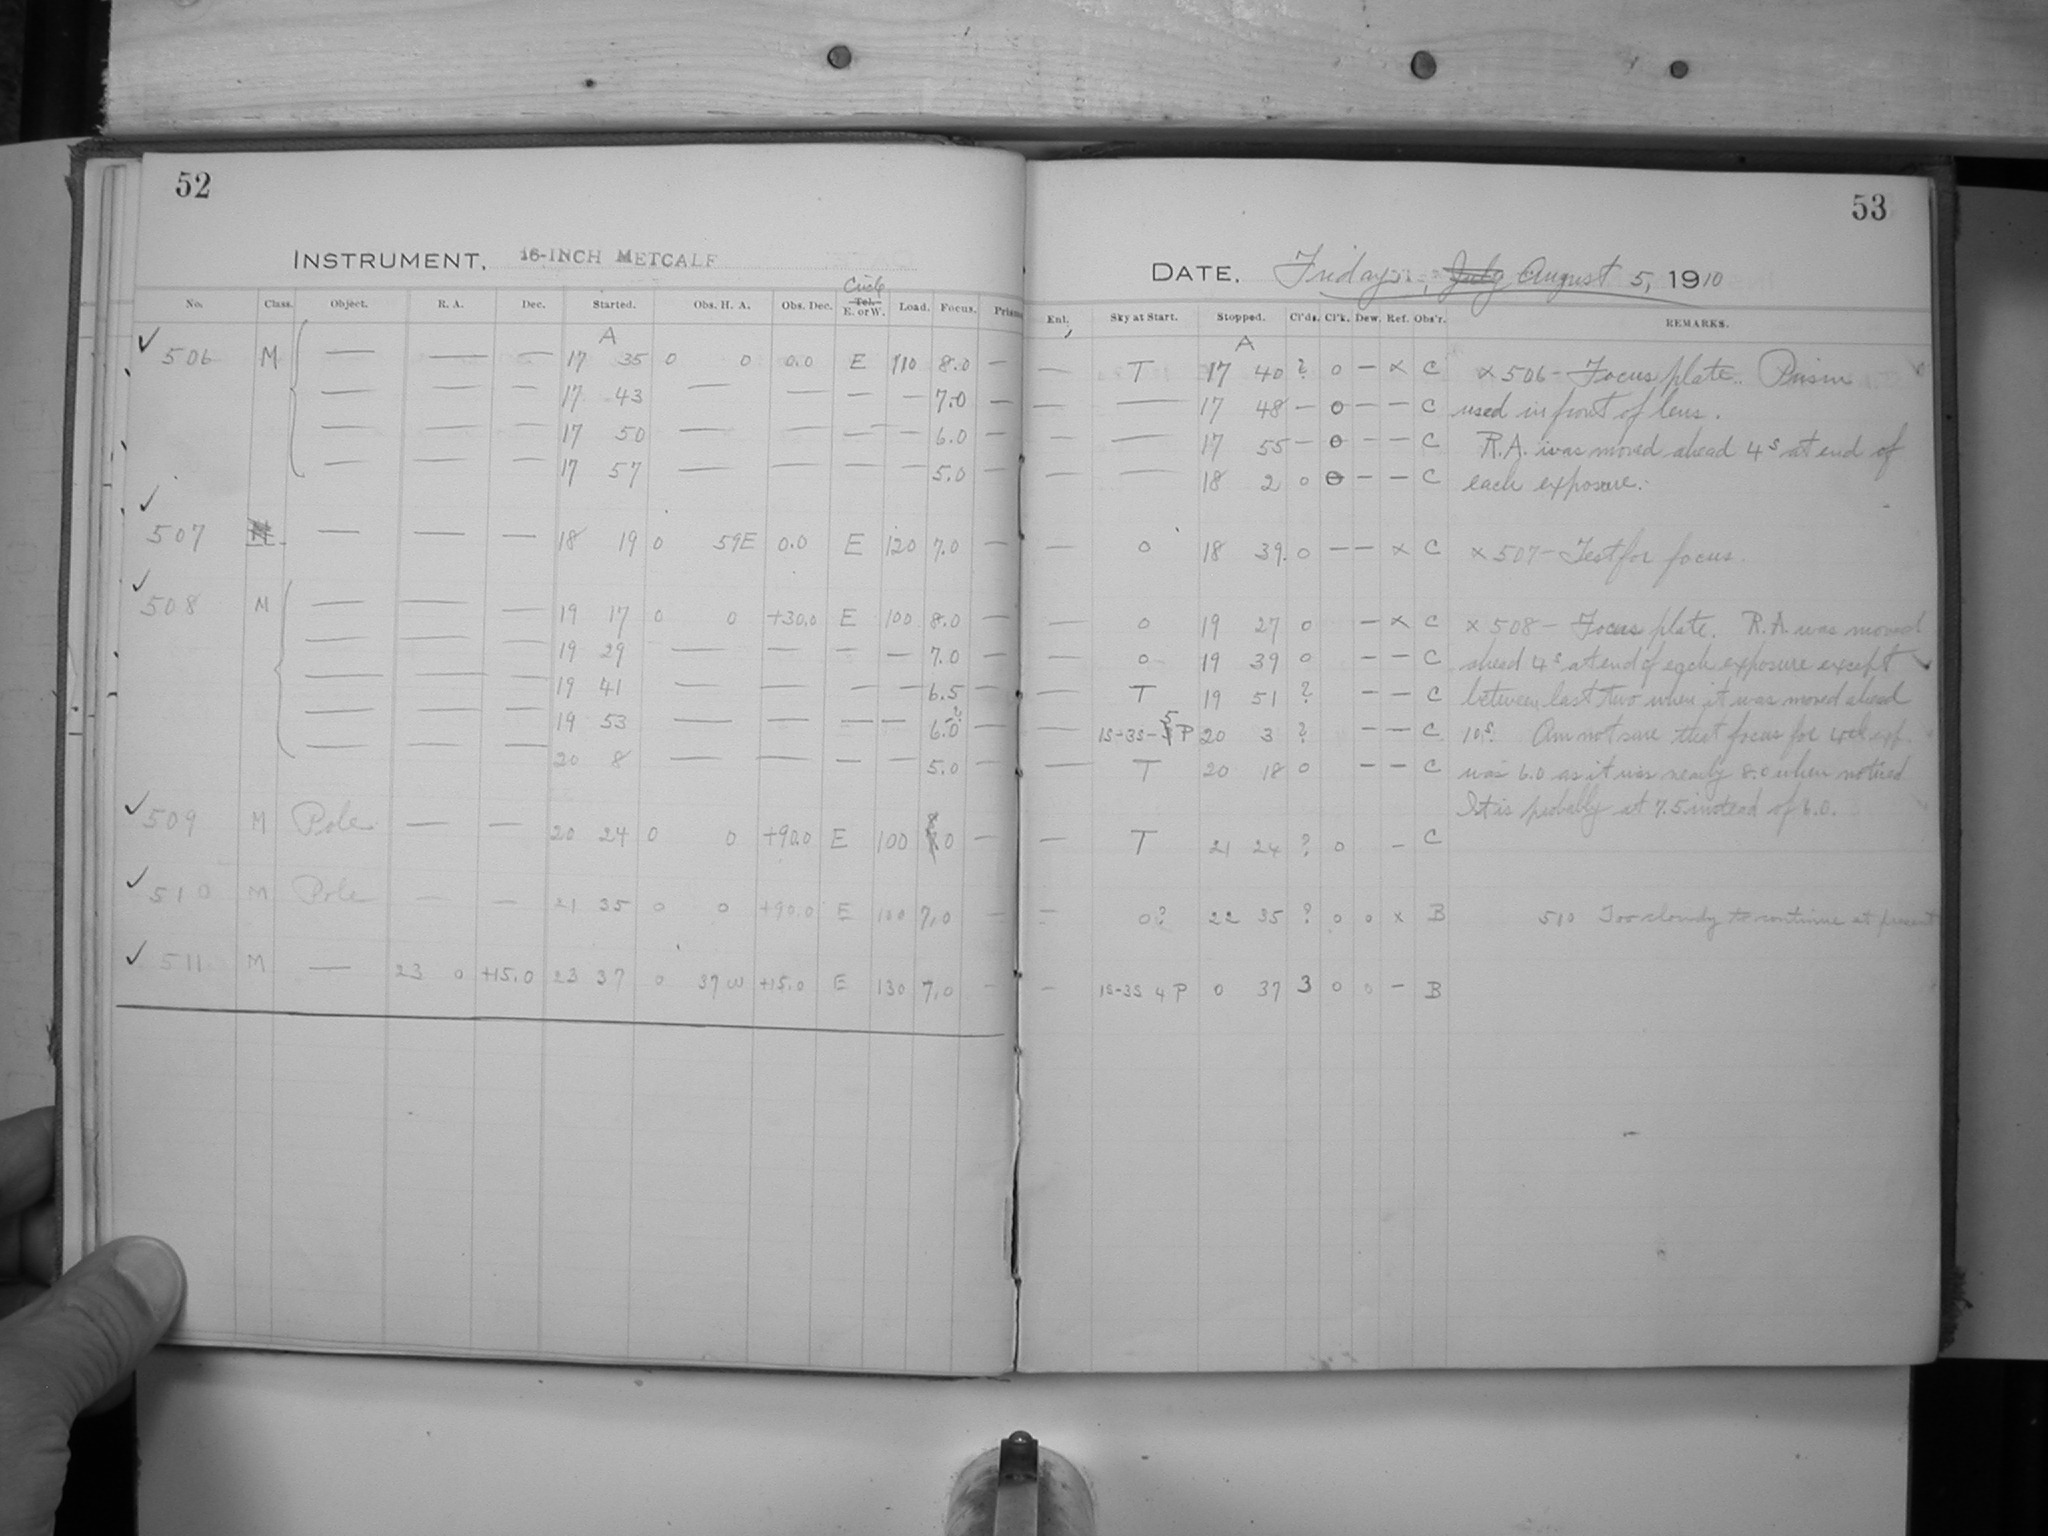 52
INSTRUMENT. 16-INCH METCALF
Circle
No. Class. Object. R. A. Dec. Started. Obs. H. A. Obs. Dec. Tel. E. or W. Load. Focus. Prism
A
506 M — — — 17 35 0 0 0.0 E 110 8.0 —
— — — 17 43 — — — — 7.0 —
— — — 17 50 — — — — 6.0 —
— — — 17 57 — — — — 5.0 —
507 M — — — 18 19 0 59E 0.0 E 120 7.0 —
508 M — — — 19 17 0 0 +30.0 E 100 8.0 —
— — — 19 29 — — — — 7.0 —
— — — 19 41 — — — — 6.5 —
— — — 19 53 — — — — 6.0? —
— — — 20 8 — — — — 5.0 —
509 M Pole — — 20 24 0 0 +90.0 E 100 .0 —
510 M Pole — — 21 35 0 0 +90.0 E 100 7.0 —
511 M — 23 0 +15.0 23 37 0 37W +15.0 E 130 7.0 —
53
DATE. Friday, July August 5, 1910
Ent. Sky at Start. Stopped. Cl'ds. Cl'k. Dew. Ref. Obs'r. REMARKS.
A
— T 17 40 ? 0 — x C x 506 — Focus plate. Prism
— — 17 48 — 0 — — C used in front of lens.
— — 17 55 — 0 — — C R.A. was moved ahead 4s at end of
— — 18 2 0 0 — — C each exposure.
— 0 18 39 0 — — x C x 507 — Test for focus.
— 0 19 27 0 — x C x 508 — Focus plate. R.A. was moved
— 0 19 39 0 — — C ahead 4s at end of each exposure except
— T 19 51 ? — — C between last two when it was moved ahead
— 1S-3S-5P 20 3 ? — — C 10s. Am not sure that focus for
— T 20 18 0 — — C was 6.0 as it was nearly 8.0 when noticed
It is probably at 7.5 instead of 6.0.
— T 21 24 ? 0 — C
— 0? 22 35 ? 0 0 x B 510 Too cloudy to continue at present
— 1S-3S 4P 0 37 3 0 0 — B